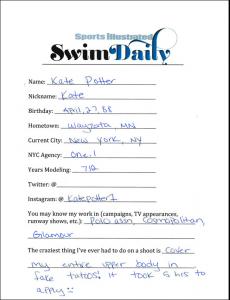 Sports Illustrated
Swim Daily
Name: Kate Potter
Nickname: Kate
Birthday: April, 27, 88
Hometown: Wayzata, MN
Current City: New York, NY
NYC Agency: One.1
Years Modeling: 7 1/2
Twitter: @
Instagram: @ katepotter1
You may know my work in (campaigns, TV appearances,
runway shows, etc.): Polo assn, Cosmopolitan,
Glamour
The craziest thing I've ever had to do on a shoot is cover
my entire upper body in
fake tatoos: it took 5 hrs to
apply :